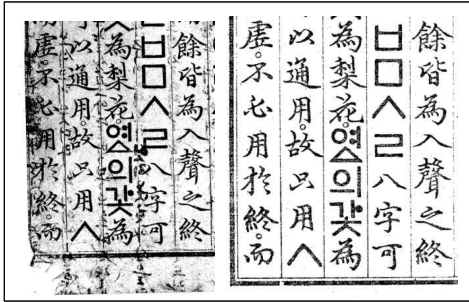 餘皆為入聲之終
ㅂㅁㅅㄹ八字可
為梨花。여ᇫ의갗為
以通用。故只用ㅅ
虛。不必用於終。而
餘皆為入聲之終
ㅂㅁㅅㄹ八字可
為梨花。여ᇫ의갗為
以通用。故只用ㅅ
虛。不必用於終。而